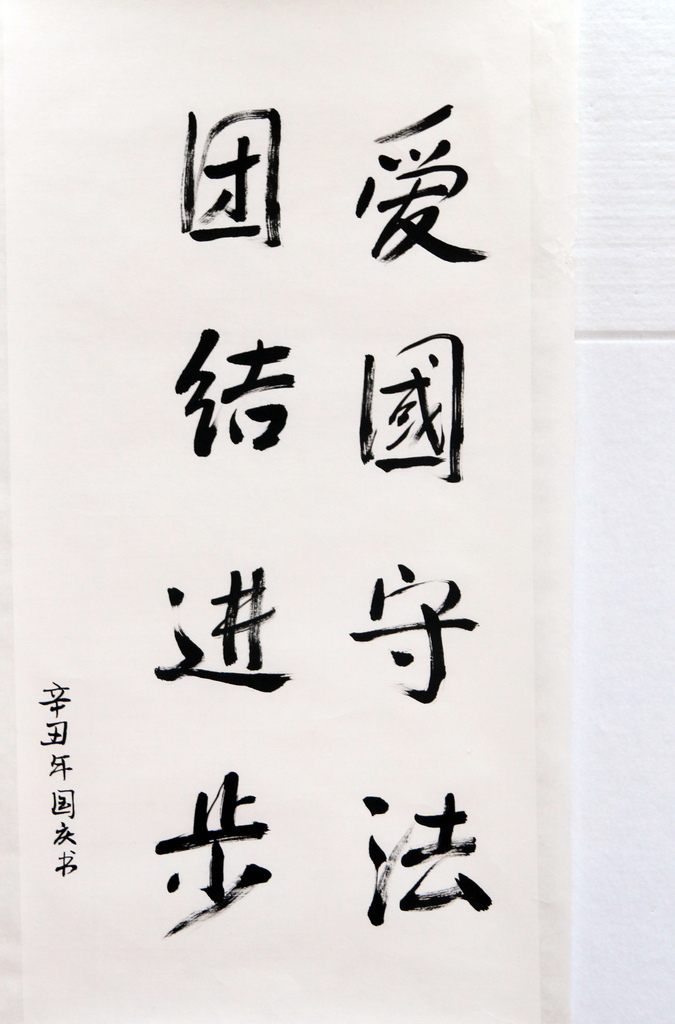 爱國守法
团结进步
辛丑年国庆书